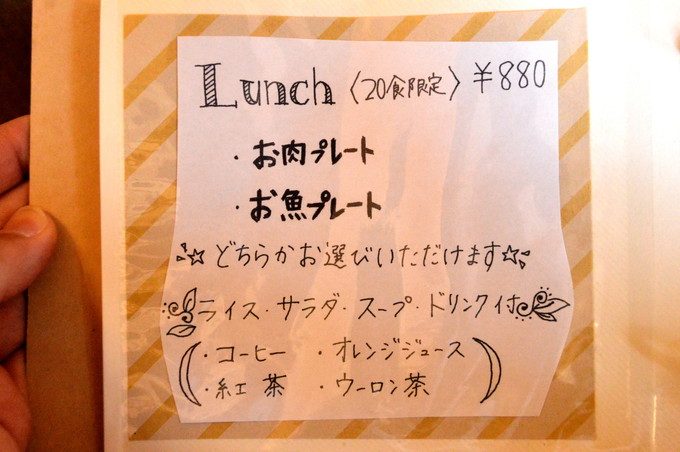 Lunch 〈20食限定〉 ¥880
・お肉プレート
・お魚プレート
☆どちらかお選びいただけます☆
ライス・サラダ・スープ・ドリンク付
(・コーヒー ・オレンジジュース
・紅茶 ・ウーロン茶)